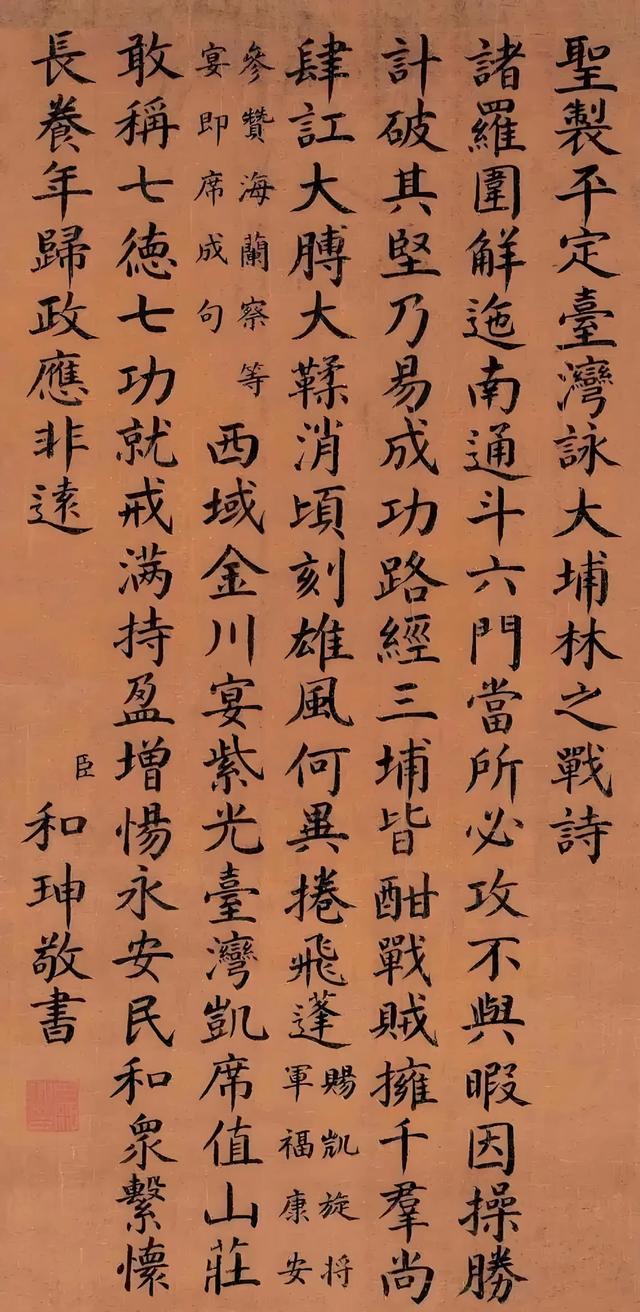 聖製平定臺灣詠大埔林之戰詩
諸羅圍解迤南通斗六門當所必攻不與暇因操勝
計破其堅乃易成功路經三埔皆酣戰賊擁千羣尚
肆訌大膊大鞣消頃刻雄風何異捲飛蓬賜凱旋将軍福康安
參贊海蘭察等宴即席成句西域金川宴紫光臺灣凱席值山莊
敢稱七德七功就戒满持盈增惕永安民和衆繫懷
長養年歸政應非遠
臣和珅敬書